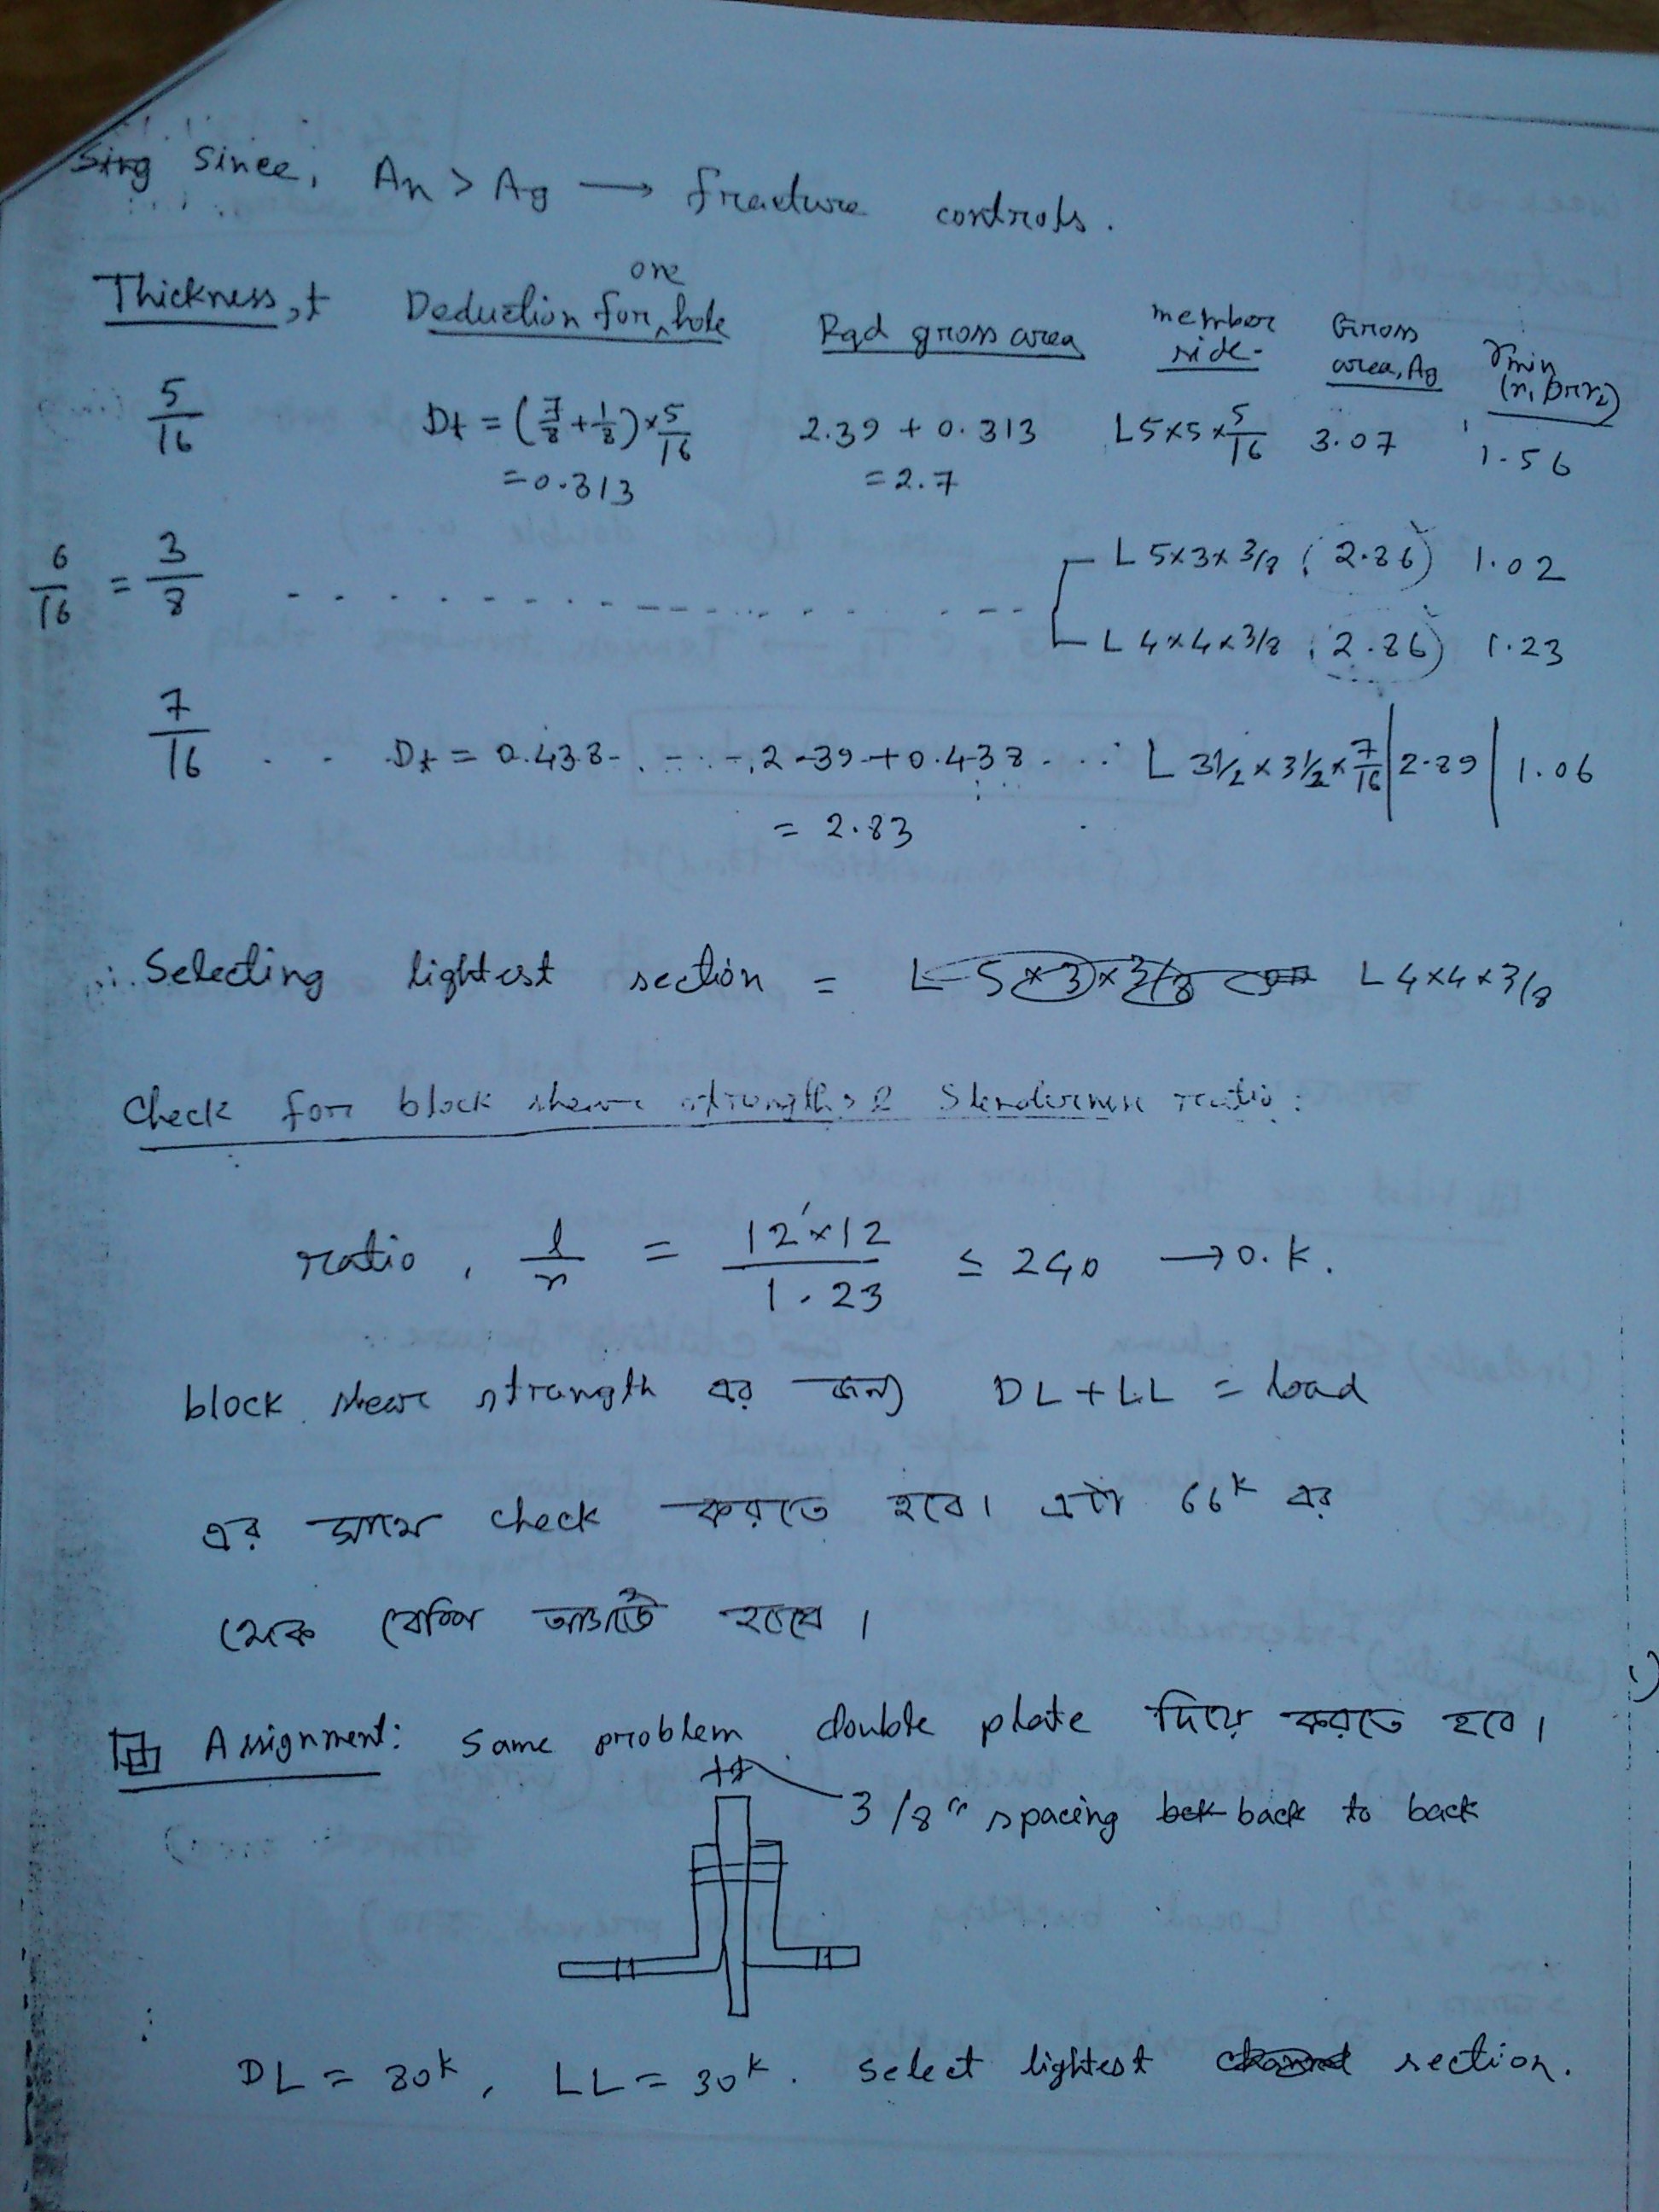 Since, An > Ag → fracture controls.
Thickness, t Deduction for one hole Rqd gross area member side Gross area, Ag rmin (r, or rz)
5/16 Dt = (7/8 + 1/8) × 5/16 = 0.313 2.39 + 0.313 = 2.7 L 5×5×5/16 3.07 1.56
6/16 = 3/8 L 5×3×3/8 (2.86) 1.02
L 4×4×3/8 (2.86) 1.23
7/16 Dt = 0.438 2.39 + 0.438 = 2.83 L 3½×3½×7/16 2.89 1.06
∴ Selecting lightest section = L 5×3×3/8 or L 4×4×3/8
Check for block shear strength & Slenderness ratio:
ratio, l/r = 12'×12 / 1.23 ≤ 240 → O.K.
block shear strength এর জন্য DL + LL = load
এর সাথে check করতে হবে। এটা 66k এর
থেকে বেশি হবে।
Assignment: Same problem double plate দিয়ে করতে হবে।
3/8" spacing back to back
DL = 80k, LL = 30k. Select lightest section.